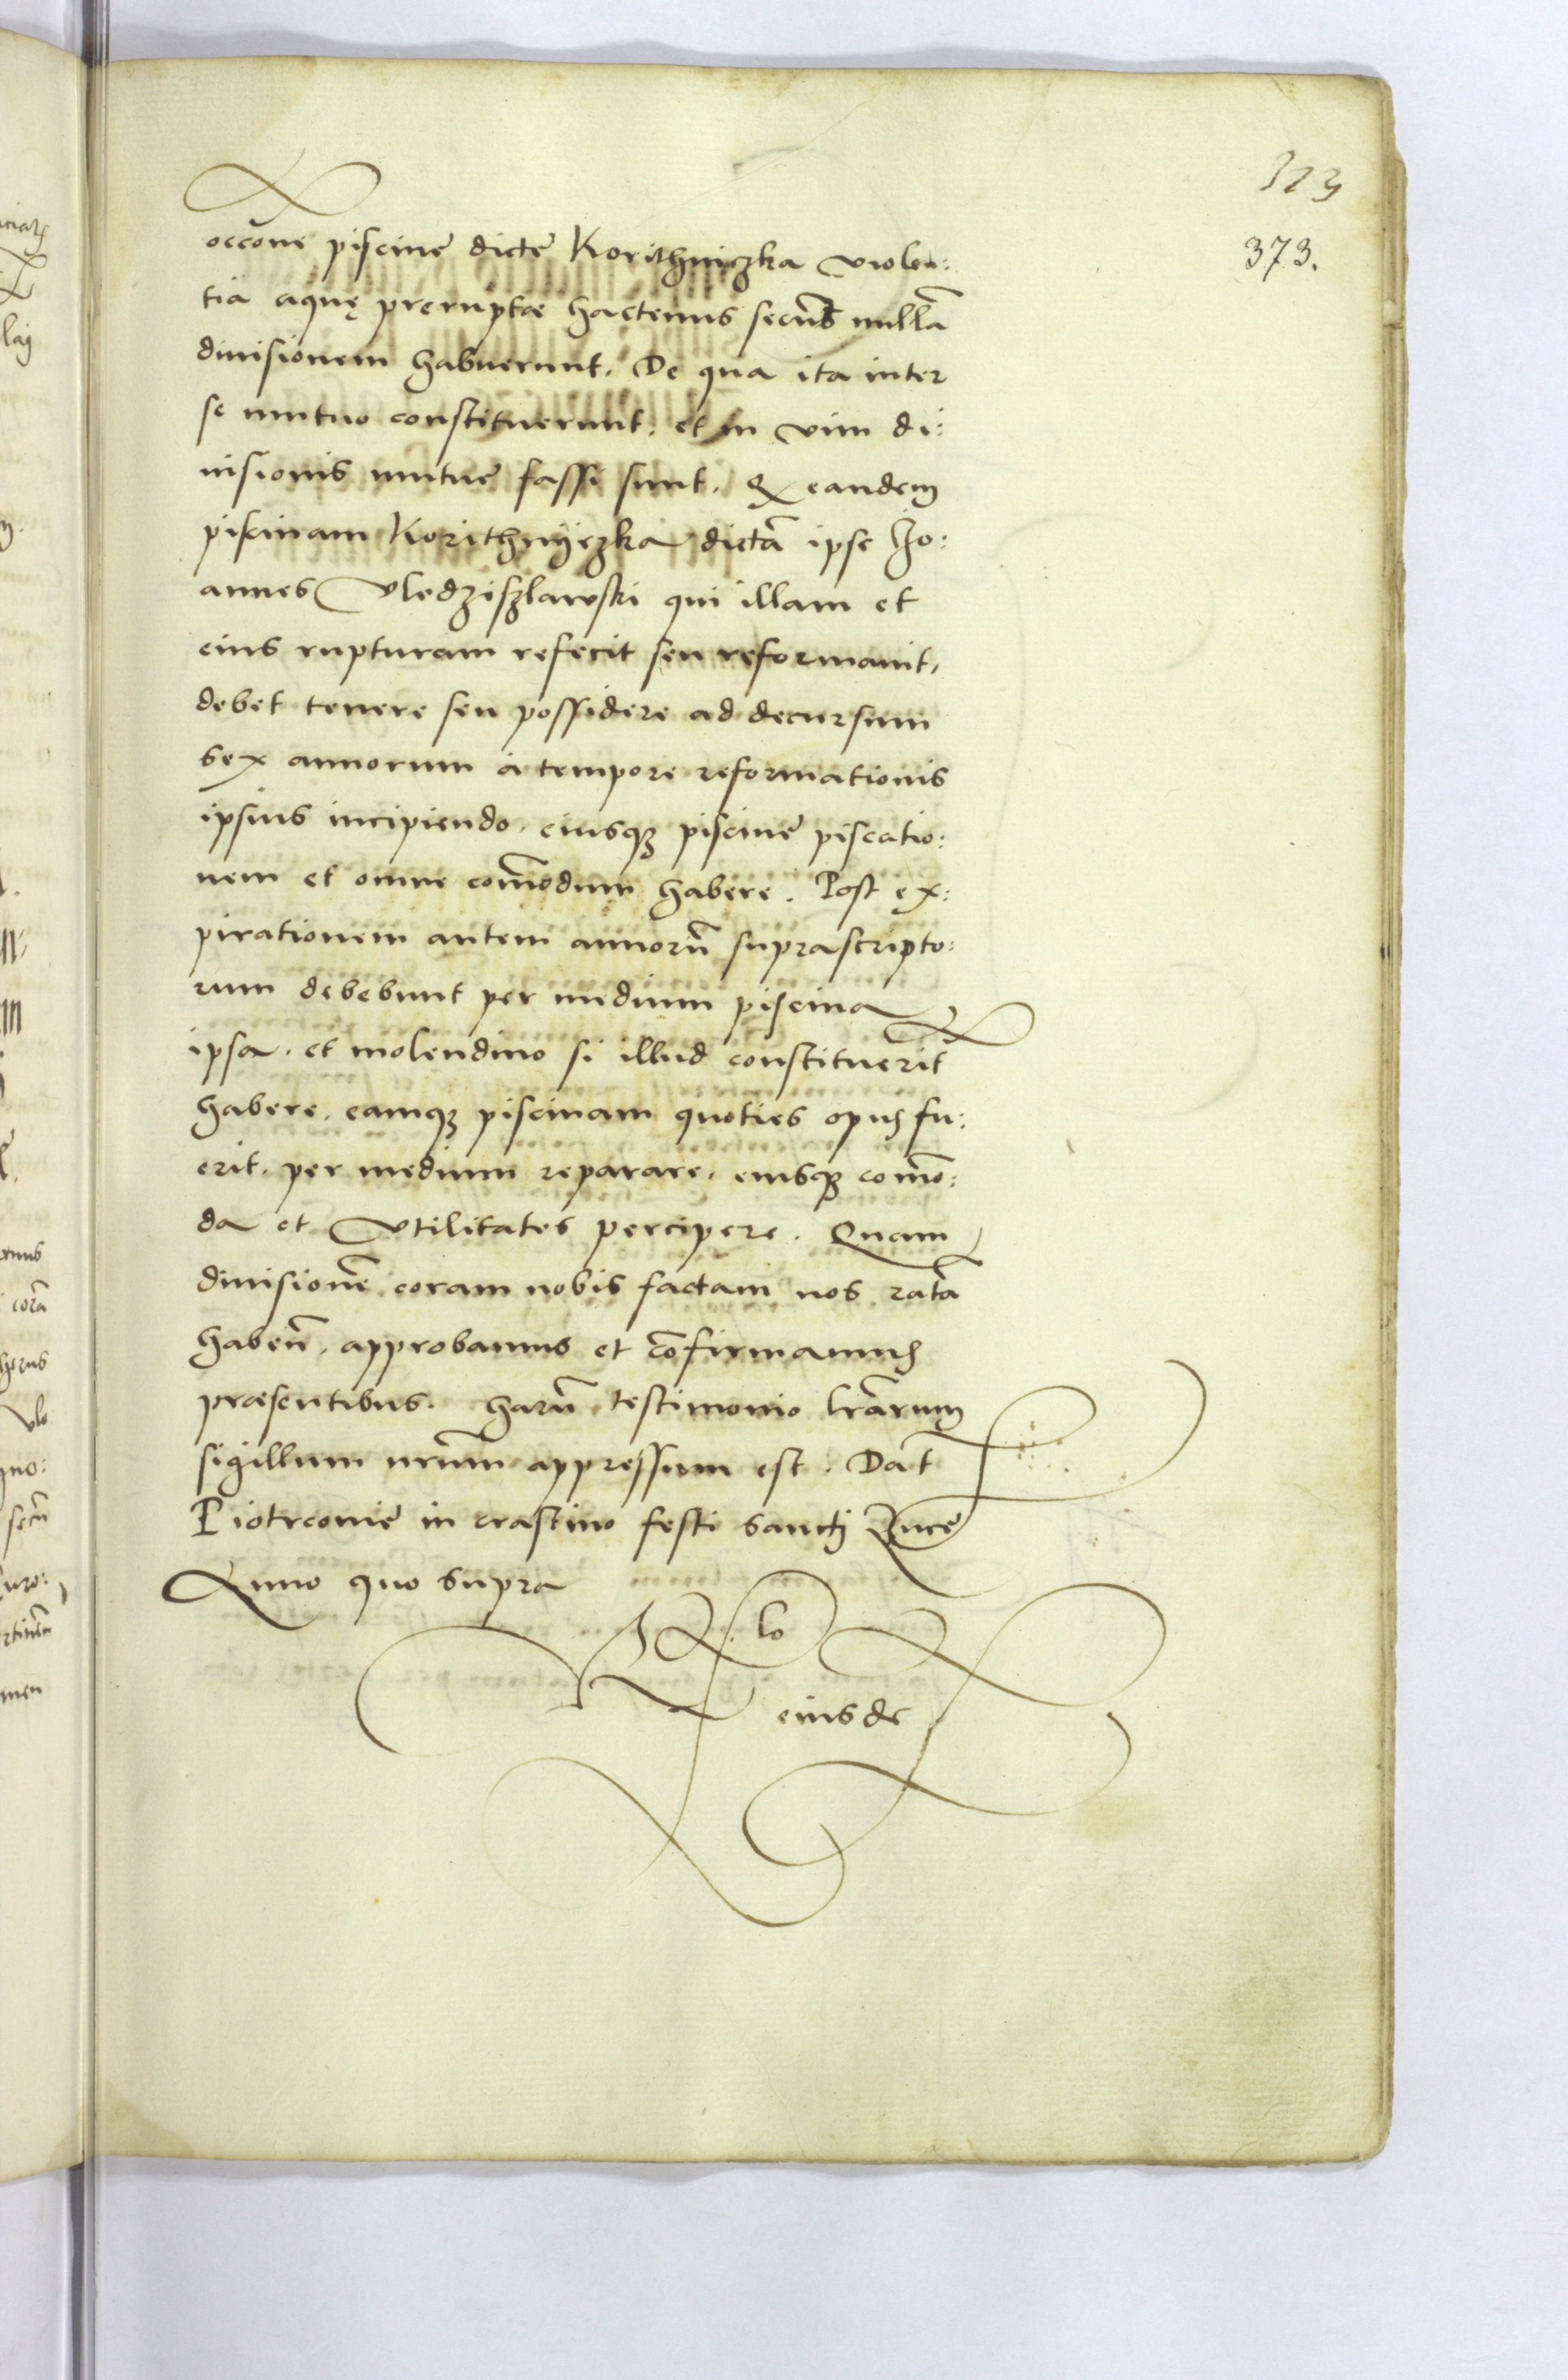 323
373.
occōne piscinę dictę Korithniczka violen:
tia aquę preruptæ hactenus secūs nullā
diuisionem habuerunt. De qua ita inter
se mutuo constituerunt, et in vim di:
uisionis mutuę fassi sunt. Q eandem
piscinam Korithnyczka dictā ipse Jo:
annes Vledziszlawski qui illam et
eius rupturam refecit seu reformauit,
debet tenere seu possidere ad decursum
sex annorum à tempore reformationis
ipsius incipiendo. eiusqꝫ piscinę piscatio:
nem et omne com̄odum habere. Post ex:
pirationem autem annorū suprascripto:
rum debebunt per medium piscina
ipsa. et molendino si illud constituerit
habere. eamqꝫ piscinam quoties opus fu:
erit. per medium reparare. eiusqꝫ com̄o:
da et vtilitates percipere. Quam
diuisionē coram nobis factam nos ratā
habeñ. approbamus et cōfirmamus
præsentibus. harū testimonio lrārum
sigillum nrūm appressum est. Dat
Piotrconię in crastino festi sancti Lucę
Anno quo supra
eiusde